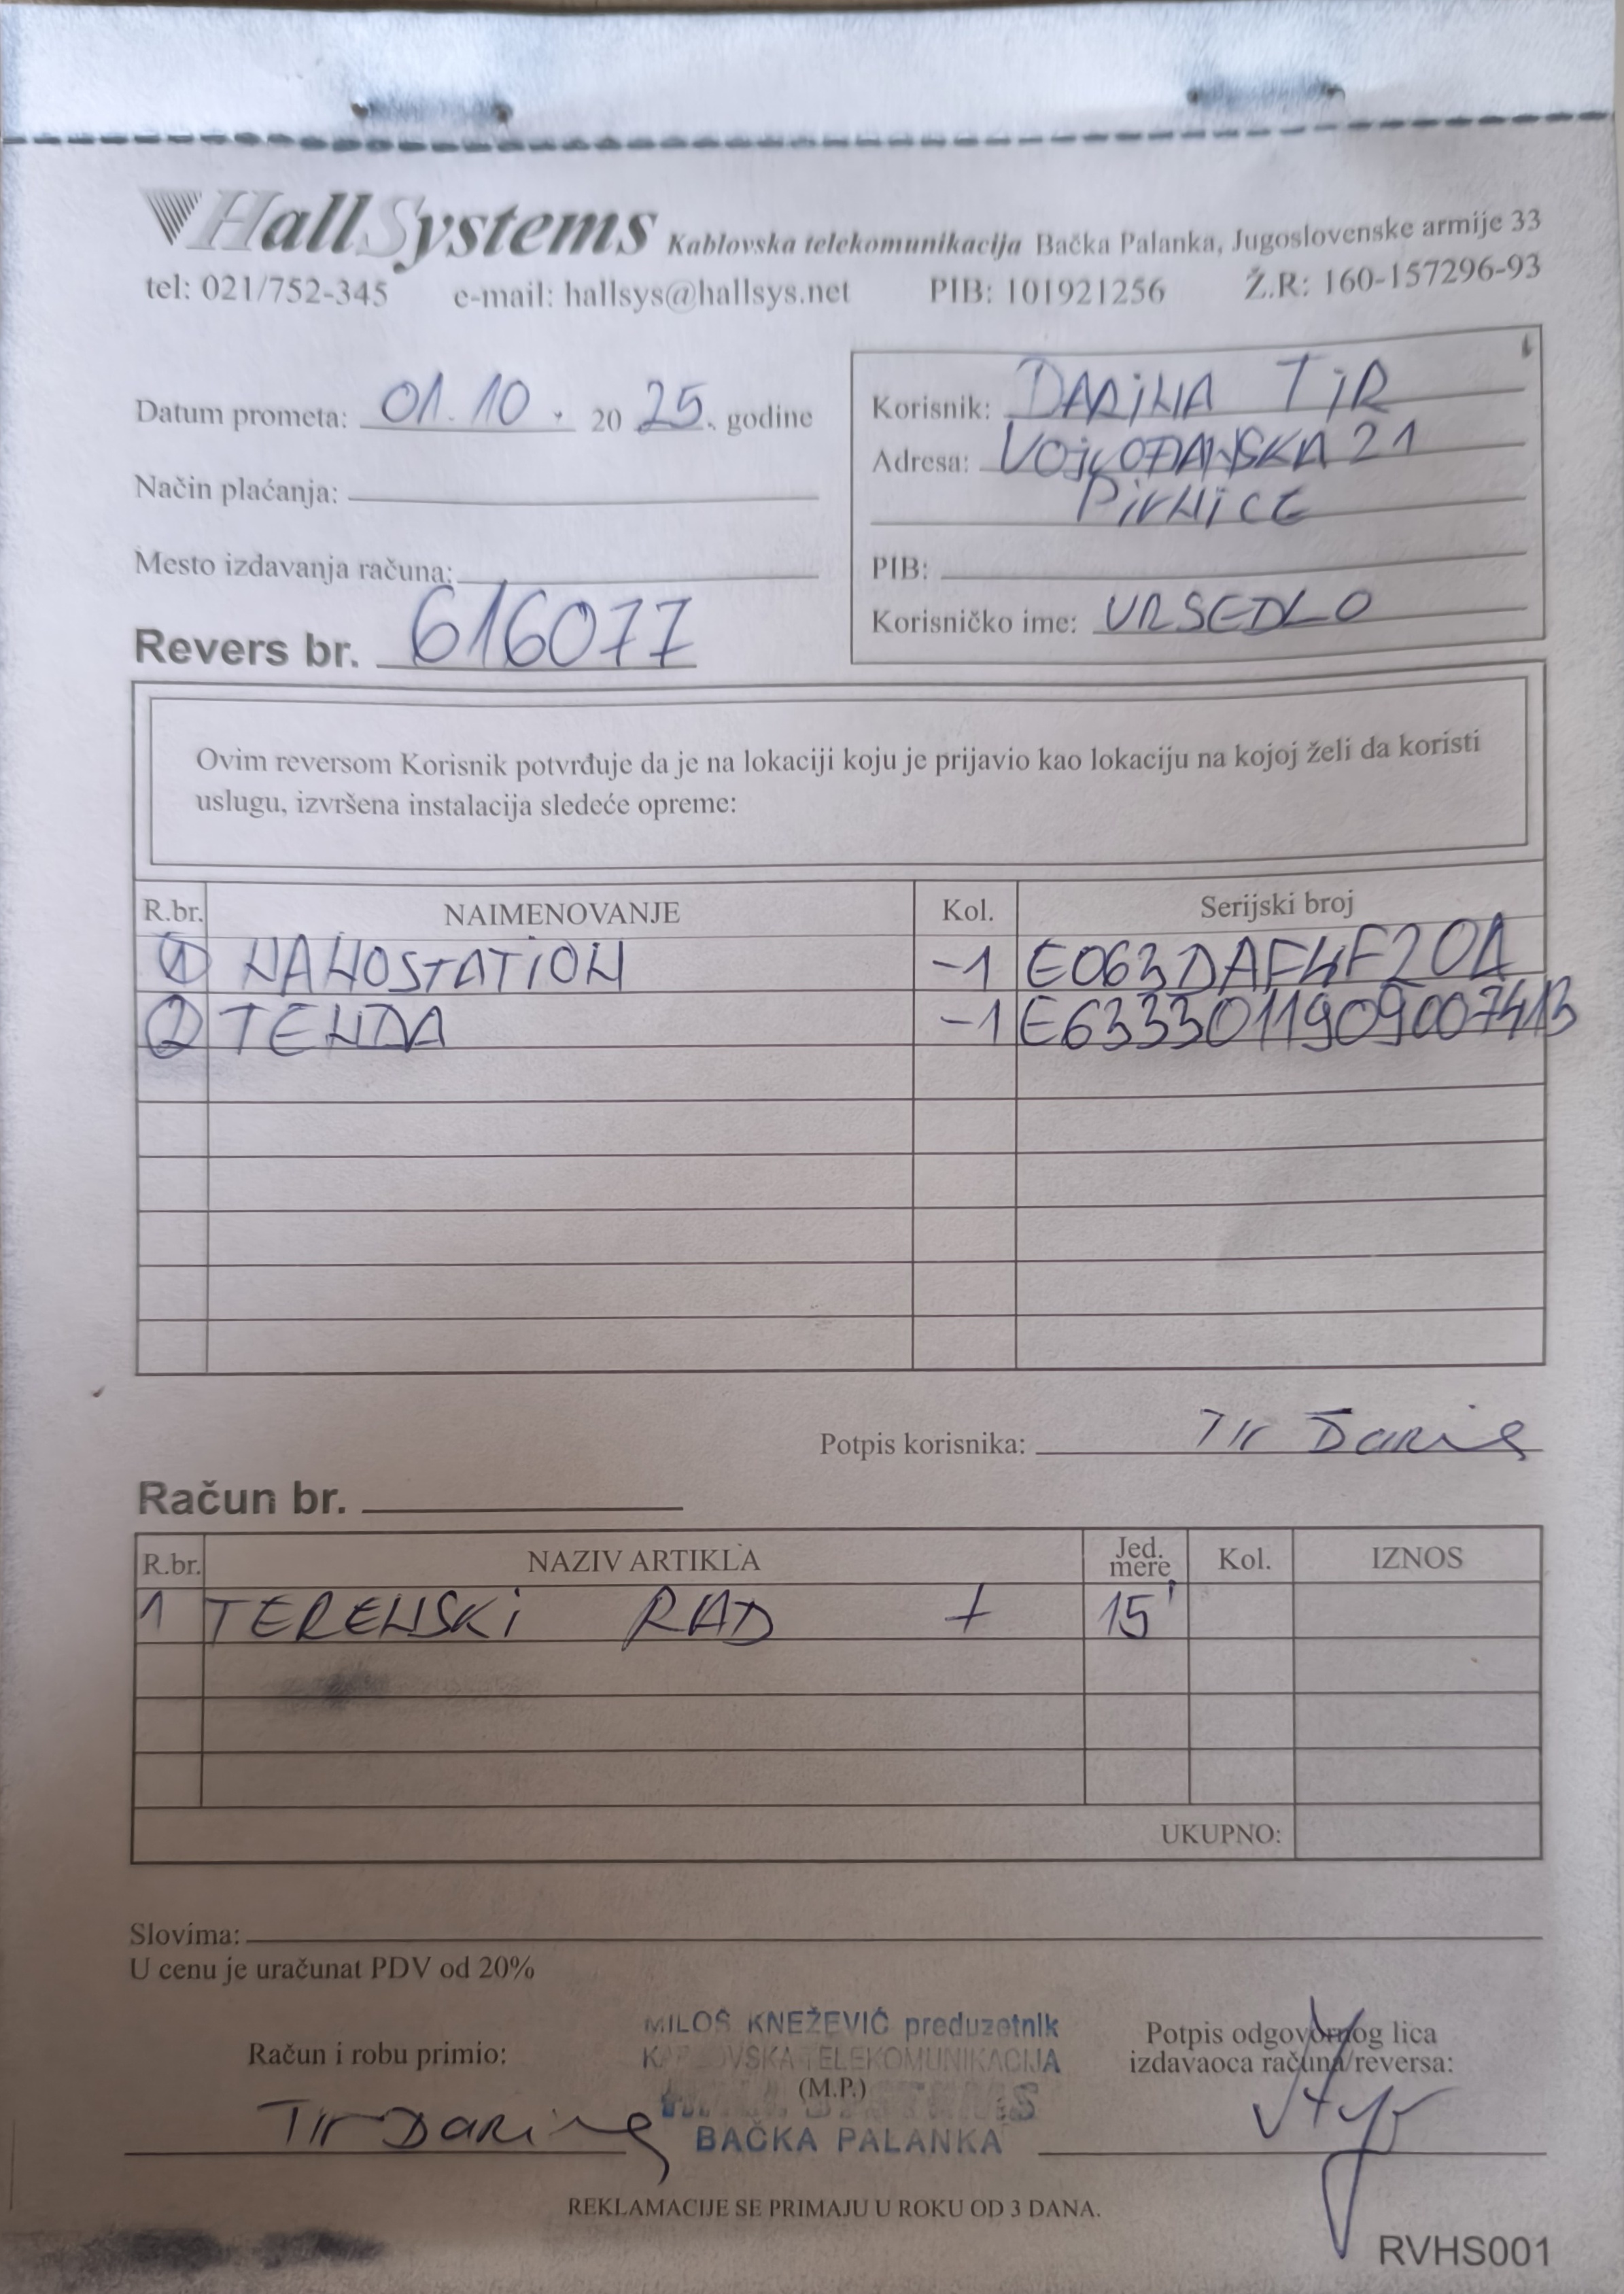 HallSystems Kablovska telekomunikacija Bačka Palanka, Jugoslovenske armije 33
tel: 021/752-345 e-mail: hallsys@hallsys.net PIB: 101921256 Ž.R: 160-157296-93
Datum prometa: 01.10. 2025. godine
Način plaćanja:
Mesto izdavanja računa:
Revers br. 616077
Korisnik: DARINA TIR
Adresa: VOJVOĐANSKA 21
PIVNICE
PIB:
Korisničko ime: URSEDLO
Ovim reversom Korisnik potvrđuje da je na lokaciji koju je prijavio kao lokaciju na kojoj želi da koristi
uslugu, izvršena instalacija sledeće opreme:
R.br. NAIMENOVANJE Kol. Serijski broj
1 NANOSTATION -1 E063DAF4F20A
2 TENDA -1 E6333011909007413
Potpis korisnika: Tir Darina
Račun br.
R.br. NAZIV ARTIKLA Jed. mere Kol. IZNOS
1 TERENSKI RAD + 15'
UKUPNO:
Slovima:
U cenu je uračunat PDV od 20%
Račun i robu primio:
Tir Darina
MILOŠ KNEŽEVIĆ preduzetnik
KABLOVSKA TELEKOMUNIKACIJA
(M.P.)
HALL SYSTEMS
BAČKA PALANKA
Potpis odgovornog lica
izdavaoca računa/reversa:
REKLAMACIJE SE PRIMAJU U ROKU OD 3 DANA.
RVHS001